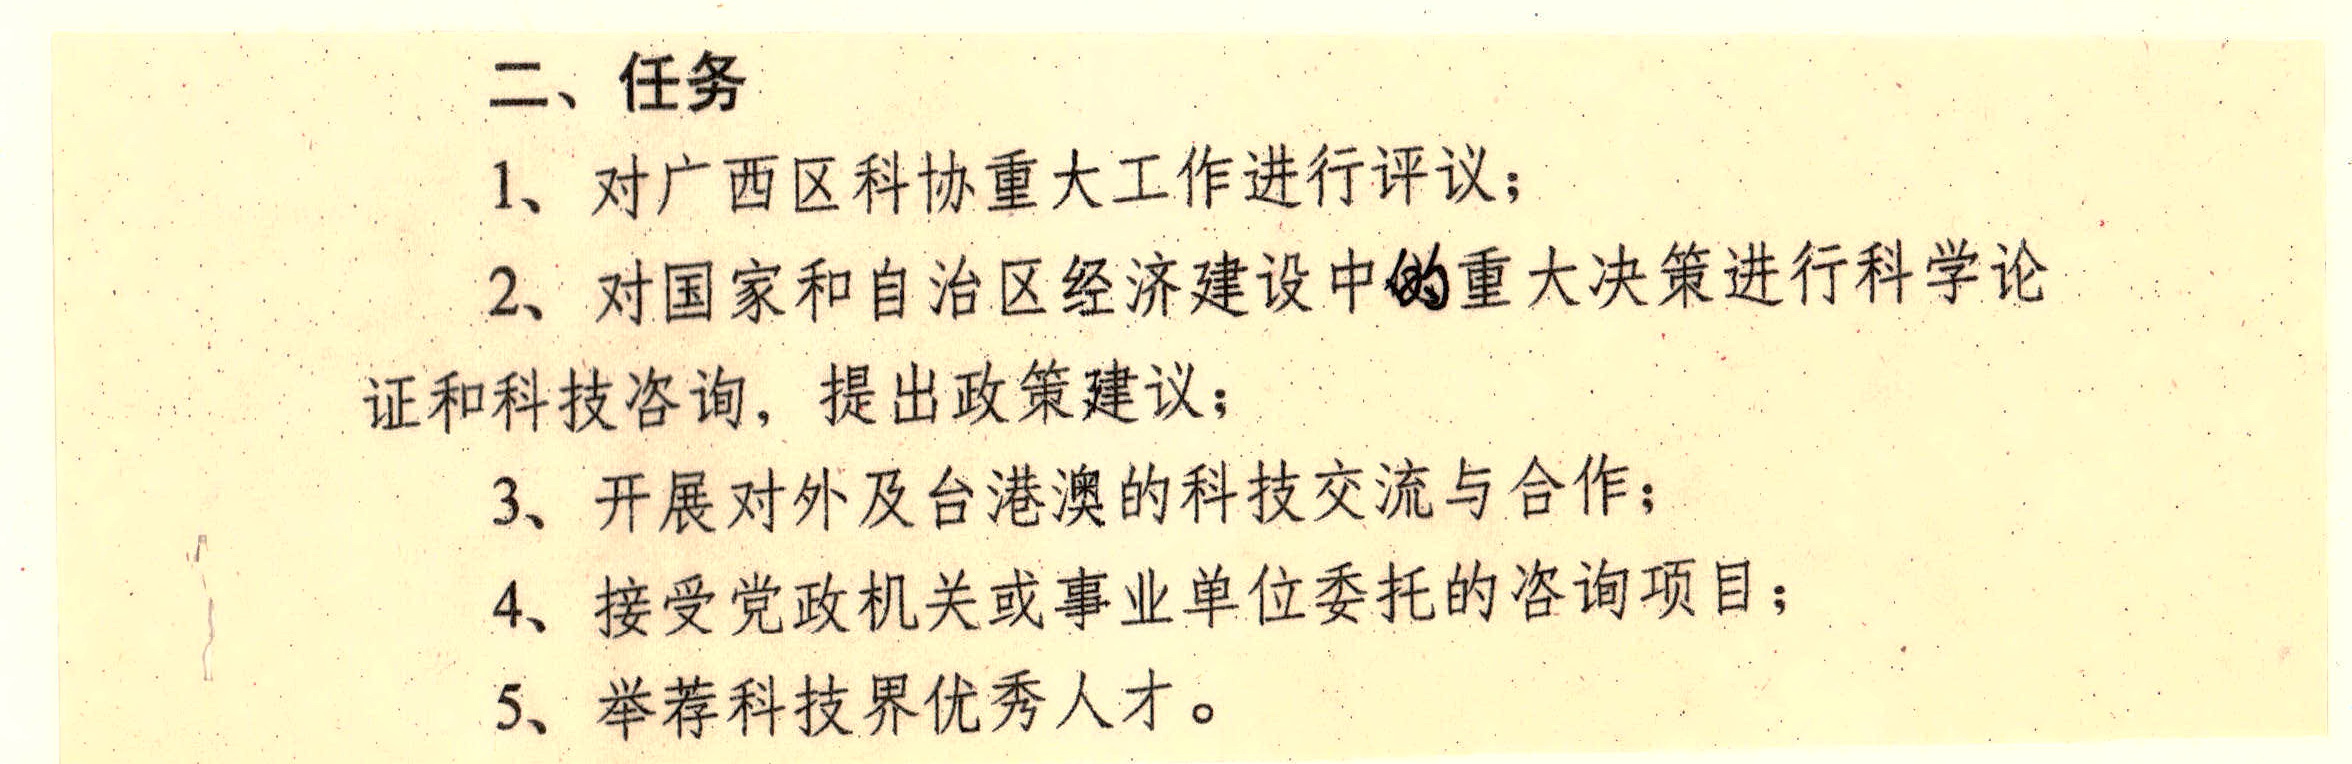 二、任务
1、对广西区科协重大工作进行评议；
2、对国家和自治区经济建设中的重大决策进行科学论
证和科技咨询，提出政策建议；
3、开展对外及台港澳的科技交流与合作；
4、接受党政机关或事业单位委托的咨询项目；
5、举荐科技界优秀人才。